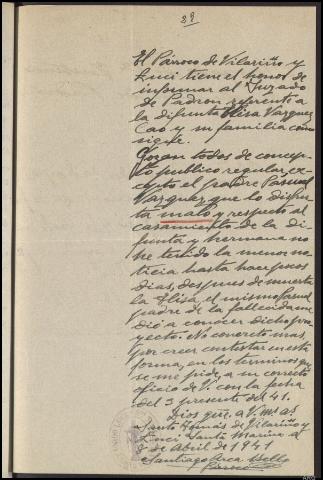 29
El Párroco de Vilariño y
Luci tiene el honor de
informar al Juzgado
de Padrón referente a
la difunta Elisa Vazquez
Cao y su familia como
sigue.
Gozan todos de concep-
to publico regular ex-
cepto el padre Pascual
Vazquez que lo disfru-
ta malo y respecto al
casamiento de la di-
funta y hermana no
he tenido la menor no-
ticia hasta hace pocos
dias, despues de muerta
la Elisa, el mismo Pascual
padre de la fallecida me
dió a conocer dicho pro-
yecto. No concreto mas,
por creer contestar en esta
forma, en los terminos que
se me pide, a su correcto
oficio de V. con la fecha
del 3 presente del 41.
Dios gue. a V. ms. as
Santo Tomás de Vilariño y
Luci Santa Marina a
de Abril de 1941
Santiago Arca Bello
Párroco